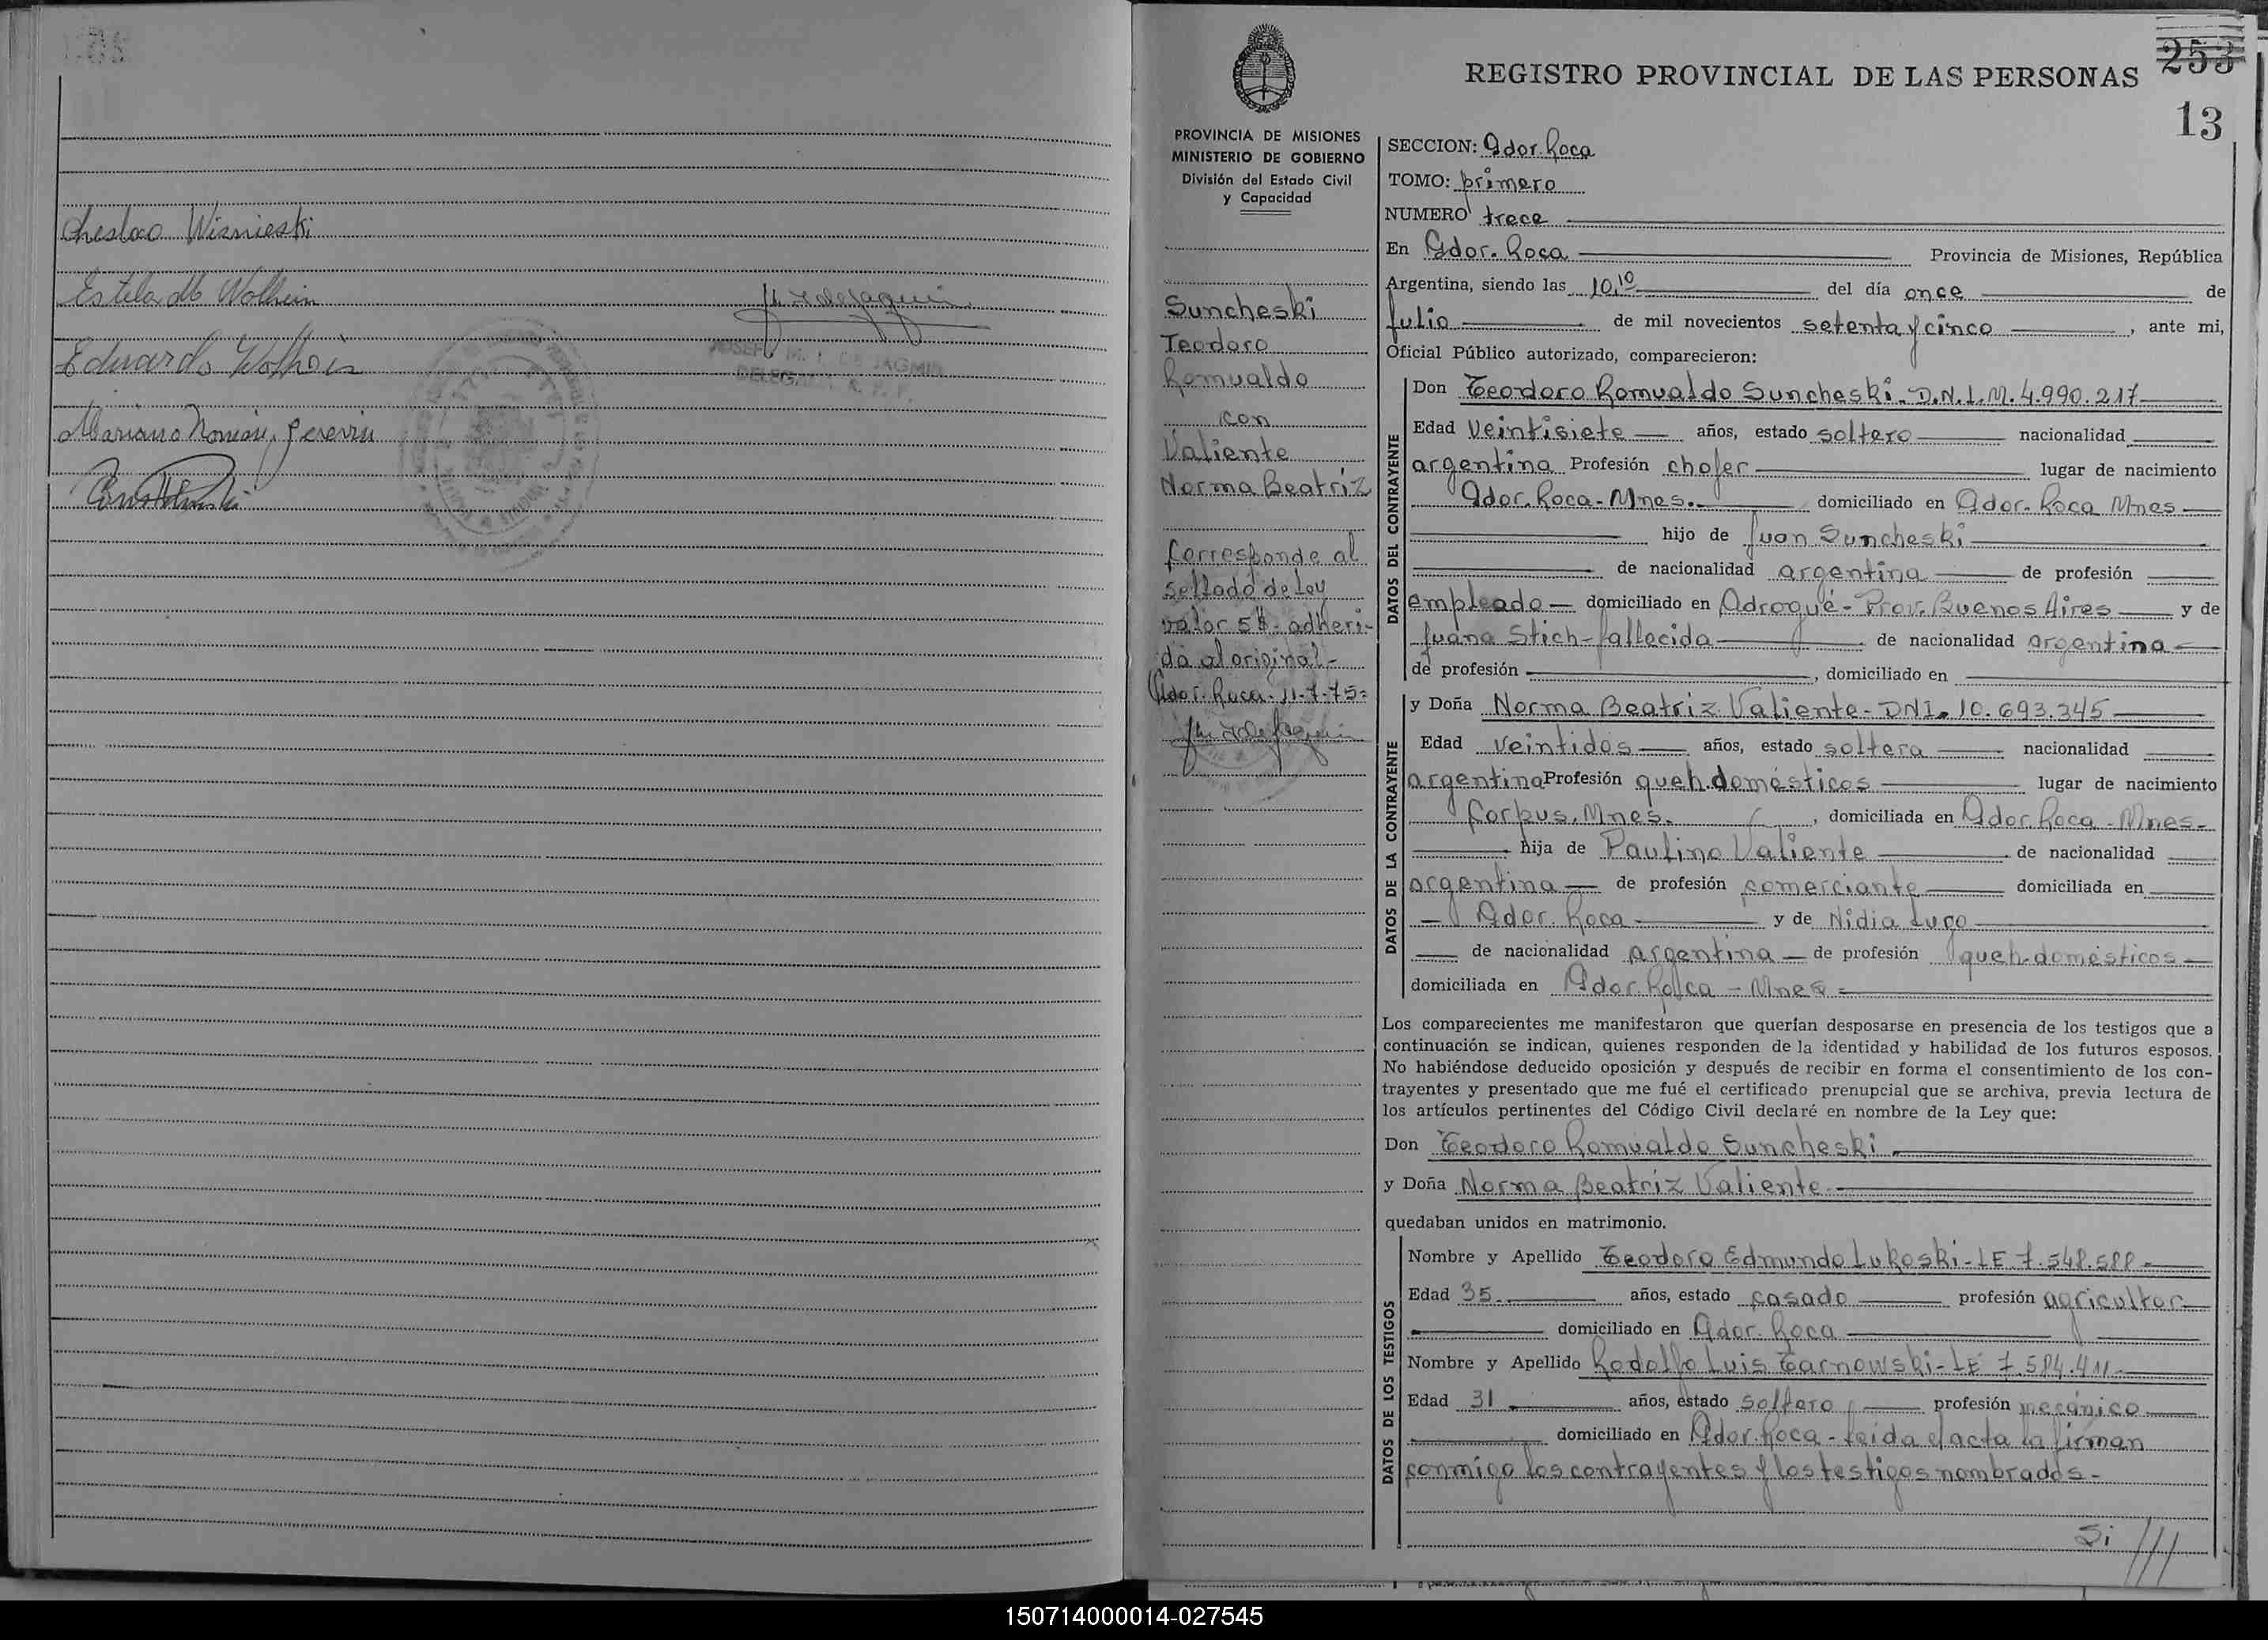 Cheslao Wisnieski
Estela
Eduardo
Mariano
JOSEFA M. T. DE JAGMIN
REGISTRO PROVINCIAL DE LAS PERSONAS
253
13
PROVINCIA DE MISIONES
MINISTERIO DE GOBIERNO
División del Estado Civil
y Capacidad
Suncheski
Teodoro
Romualdo
con
Valiente
Norma Beatriz
Corresponde al
sellado de ley
valor 5$- adheri-
do al original-
Gdor. Roca- 11-7-75-
SECCION: Gdor. Roca
TOMO: primero
NUMERO trece
En Gdor. Roca Provincia de Misiones, República
Argentina, siendo las 10,10 del día once de
Julio de mil novecientos setenta y cinco, ante mi,
Oficial Público autorizado, comparecieron:
DATOS DEL CONTRAYENTE
Don Teodoro Romualdo Suncheski- D.N.I.M. 4.990.217
Edad Veintisiete años, estado soltero nacionalidad
argentina Profesión chofer lugar de nacimiento
Gdor. Roca- Mnes. domiciliado en Gdor. Roca Mnes
hijo de Juan Suncheski
de nacionalidad argentina de profesión
empleado domiciliado en Adrogué- Prov. Buenos Aires y de
Juana Stich- fallecida de nacionalidad argentina
de profesión , domiciliado en
DATOS DE LA CONTRAYENTE
y Doña Norma Beatriz Valiente- DNI. 10.693.345
Edad Veintidos años, estado soltera nacionalidad
argentina Profesión queh. domésticos lugar de nacimiento
Corpus. Mnes. , domiciliada en Gdor. Roca - Mnes-
hija de Paulino Valiente de nacionalidad
argentina de profesión comerciante domiciliada en
Gdor. Roca y de Nidia Lugo
de nacionalidad argentina de profesión queh. domésticos
domiciliada en Gdor. Roca - Mnes
Los comparecientes me manifestaron que querían desposarse en presencia de los testigos que a
continuación se indican, quienes responden de la identidad y habilidad de los futuros esposos.
No habiéndose deducido oposición y después de recibir en forma el consentimiento de los con-
trayentes y presentado que me fué el certificado prenupcial que se archiva, previa lectura de
los artículos pertinentes del Código Civil declaré en nombre de la Ley que:
Don Teodoro Romualdo Suncheski
y Doña Norma Beatriz Valiente
quedaban unidos en matrimonio.
DATOS DE LOS TESTIGOS
Nombre y Apellido Teodoro Edmundo Lukoski- LE 7.548.588
Edad 35 años, estado casado profesión agricultor
domiciliado en Gdor. Roca
Nombre y Apellido Rodolfo Luis Tarnowski- LE 7.584.411
Edad 31 años, estado soltero profesión mecánico
domiciliado en Gdor. Roca - leida el acta la firman
conmigo los contrayentes y los testigos nombrados-
Si ///
150714000014-027545